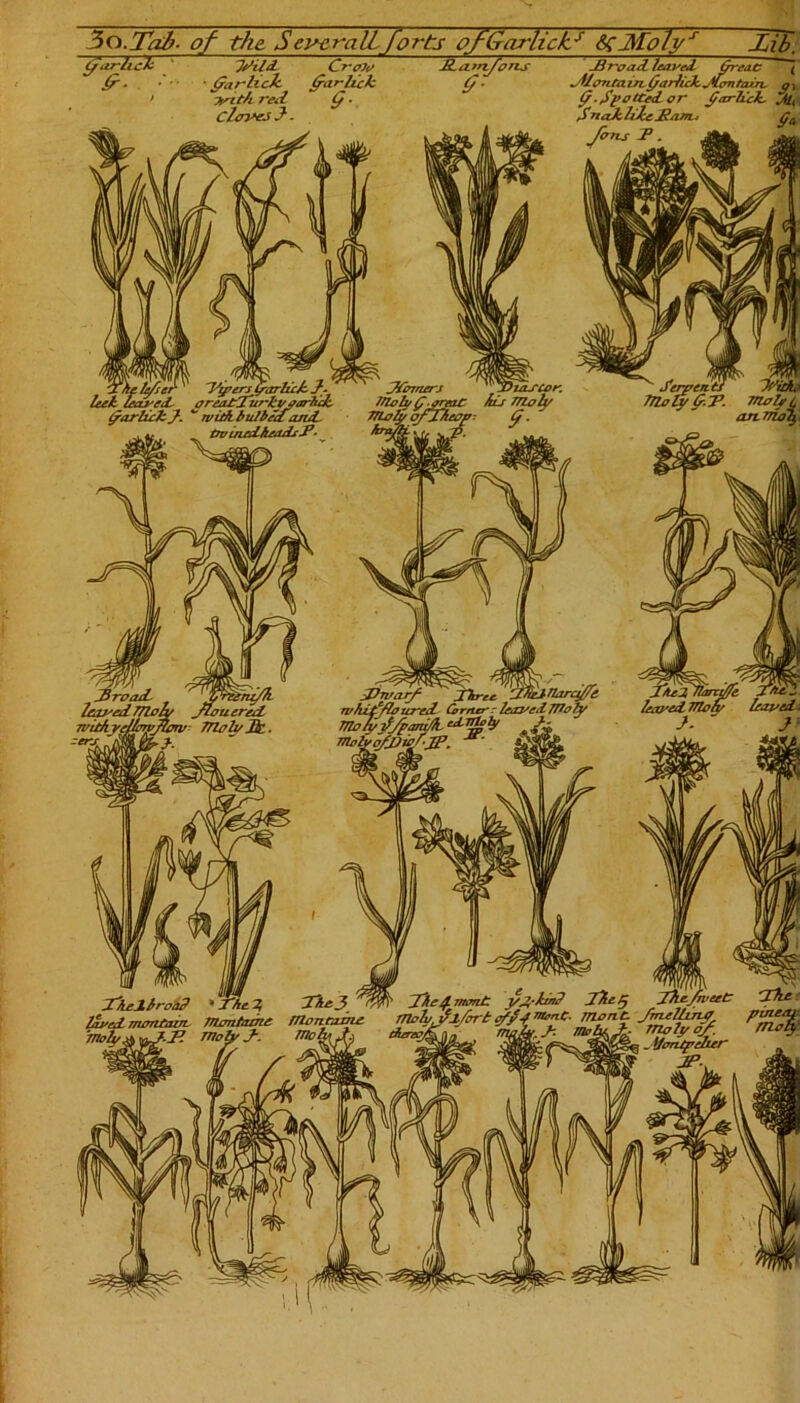 30. Tab. of the Severall sorts of Garlicks & Molys Lib.
Garlick G.
Wild Garlick with red cloves J.
Crow Garlick G.
Ramsons G.
Broad leaved Montain Garlick G. Spotted or Snak like Ramsons P.
Great Montain Garlick
The lesser Leek leaved Garlick J.
Vipers Garlick J. great Turky garlick with bulbed and twined heads P.
Homers Moly G. great Moly of Theop: P.
Dioscor. his Moly G.
Serpents Moly G. P.
Broad leaved Moly with yellow flow-ers J.
Greenish flouered Moly
Dwarf white floured Moly
Three Corner: leaved Moly
The 1 Narcisse leaved Moly J.
The 2 Narcisse leaved Moly J.
leaved
The 1 broad leaved montain moly J. P.
The 2 montaine moly J.
The 3 montaine moly J.
The 4 mont. moly
The 5 mont. moly J.
The sweet smelling moly of Montpelier P.
The pineap moly